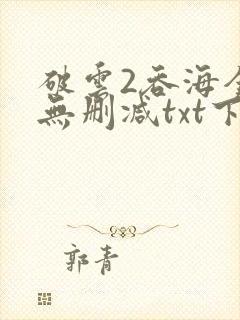 破雲2吞海全
無刪減txt下
郭青